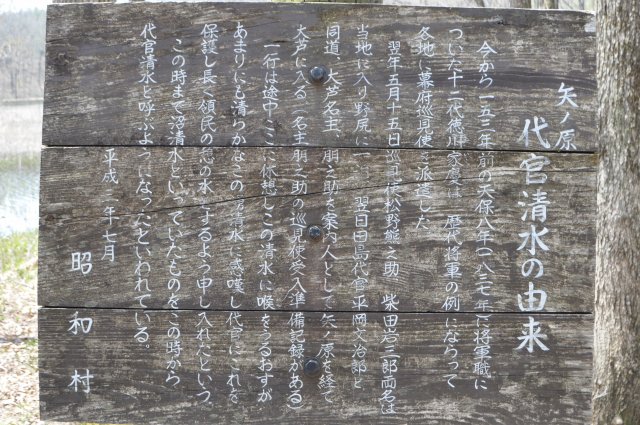 矢ノ原
代官清水の由来
今から一五二年前の天保八年(一八三七年)に将軍職に
ついた十二代徳川家慶は、歴代将軍の例にならって
各地に幕府巡見使を派遣した。
翌年五月十五日巡見使松野熊之助 柴田岩三郎両名は
当地に入り野尻に一泊、翌日田島代官平岡文治郎と
同道、大芦名主、朋之助を案内人として矢ノ原を経て
大芦に入る(名主朋之助の巡見使受入準備記録がある)
一行は途中ここに休憩しこの清水に喉をうるおすが
あまりにも清らかなこの清水に感嘆し代官にこれを
保護し長く領民の恋の水とするよう申し入れたという。
この時まで沼清水といっていたものをこの時から
代官清水と呼ぶようになったといわれている。
平成二年七月
昭和村